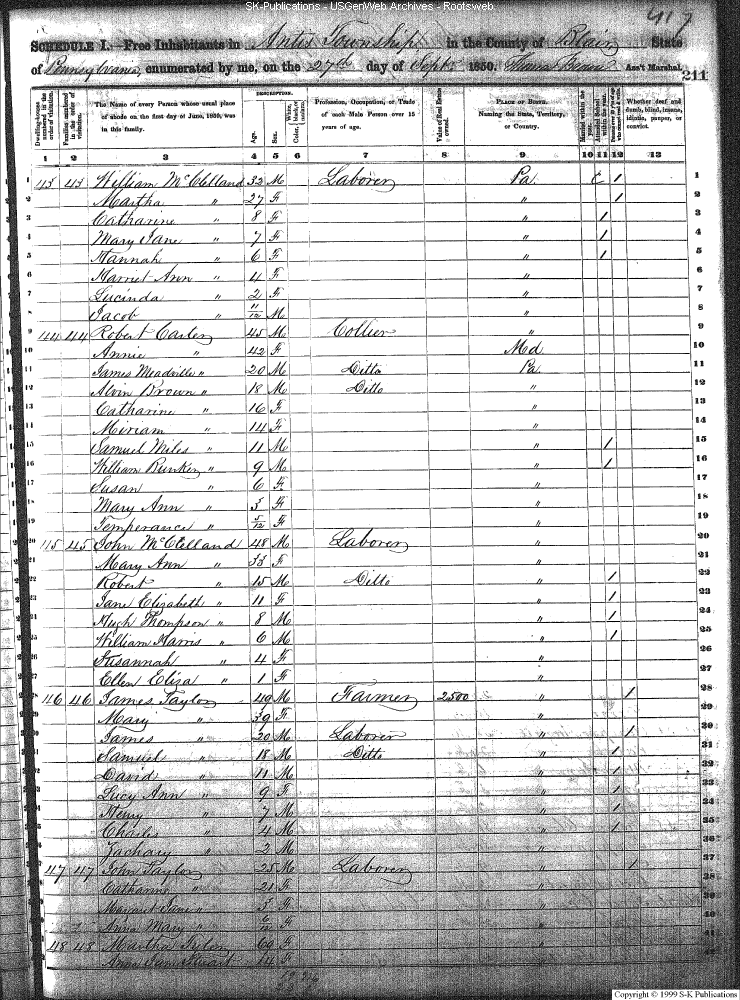 SK-Publications - USGenWeb Archives - Rootsweb
417
SCHEDULE I.—Free Inhabitants in Antis Township in the County of Blair State
of Pennsylvania, enumerated by me, on the 27th day of Septr 1850. Ass't Marshal. 211
Dwelling-houses numbered in the order of visitation. Families numbered in the order of visitation. The Name of every Person whose usual place of abode on the first day of June, 1850, was in this family. DESCRIPTION. Age. Sex. Color, White, black, or mulatto. Profession, Occupation, or Trade of each Male Person over 15 years of age. Value of Real Estate owned. PLACE OF BIRTH. Naming the State, Territory, or Country. Married within the year. Attended School within the year. Persons over 20 y'rs of age who cannot read & write. Whether deaf and dumb, blind, insane, idiotic, pauper, or convict.
1 2 3 4 5 6 7 8 9 10 11 12 13
1 43 43 William McClelland 32 M Laborer Pa. / 1
2 Martha " 27 F " / 2
3 Catharine " 8 F " / 3
4 Mary Jane " 7 F " / 4
5 Hannah " 6 F " / 5
6 Harriet Ann " 4 F " 6
7 Lucinda " 2 F " 7
8 Jacob " 11/12 M " 8
9 44 44 Robert 45 M Collier " 9
10 Annie " 42 F Md 10
11 James Meadville " 20 M Ditto Pa. 11
12 Alvin Brown " 18 M Ditto " 12
13 Catharine " 16 F " 13
14 Miriam " 14 F " 14
15 Samuel Miles " 11 M " / 15
16 William " 9 M " / 16
17 Susan " 6 F " 17
18 Mary Ann " 3 F " 18
19 Temperance " 5/12 F " 19
20 45 45 John McClelland 48 M Laborer " 20
21 Mary Ann " 33 F " 21
22 Robert " 15 M Ditto " / 22
23 Jane Elizabeth " 11 F " / 23
24 Hugh Thompson " 8 M " / 24
25 William Harris " 6 M " / 25
26 Susannah " 4 F " 26
27 Ellen Eliza " 1 F " 27
28 46 46 James Taylor 49 M Farmer 2500 " / 28
29 Mary " 39 F " 29
30 James " 20 M Laborer " / 30
31 Samuel " 18 M Ditto " / 31
32 David " 11 M " / 32
33 Lucy Ann " 9 F " / 33
34 Henry " 7 M " / 34
35 Charles " 4 M " / 35
36 Zachary " 2 M " 36
37 47 47 John Taylor 25 M Laborer " / 37
38 Catharine " 21 F " 38
39 Margaret Jane " 3 F " 39
40 Anna Mary " 6/12 F " 40
41 48 48 Martha 60 F " 41
42 Stewart 14 F " 42
Copyright © 1999 S-K Publications